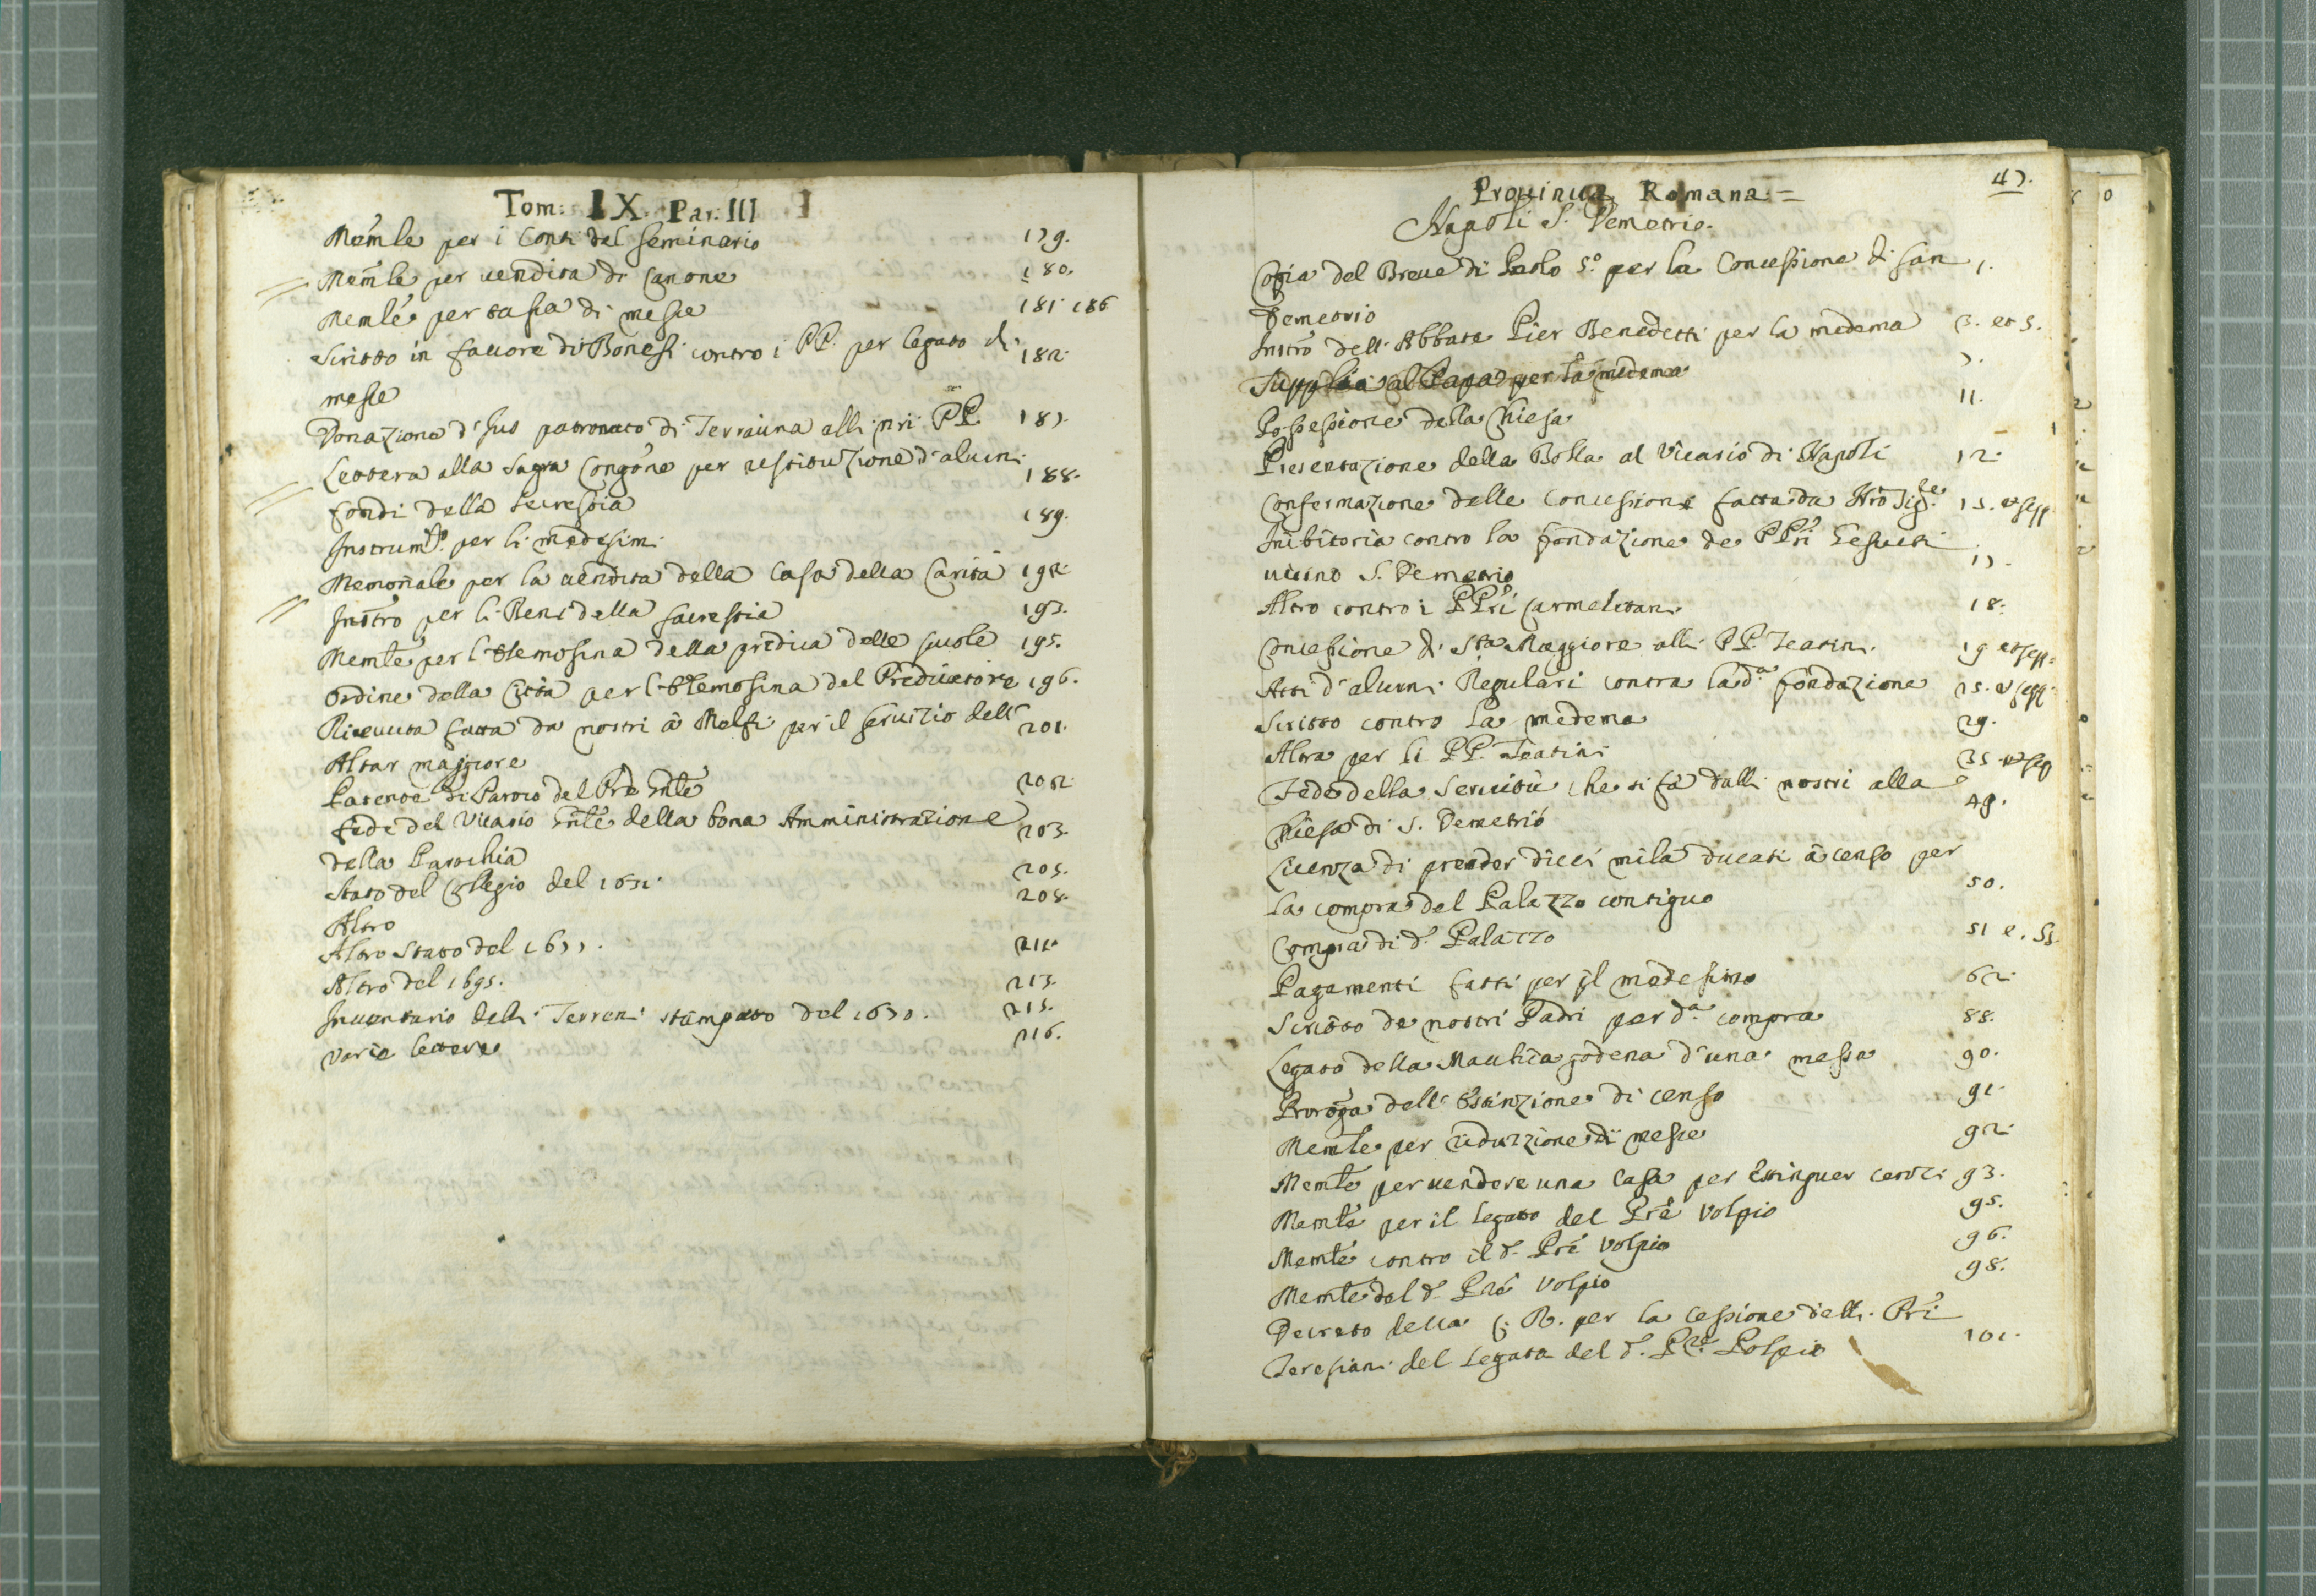 Tom: IX. Par: III
Memle per i Conti del seminario 179.
Memle per uendita di Canone 180.
Memle per tassa di messe 181. 186
Scritto in fauore di Bonesi contro i PP. per legato di 182.
messe
Donazione d'Jus patronato di Terrauina alli nri PP. 187.
Lettera alla Sagra Congone per restituzione d'alcuni 188.
fondi della secrestia
Instrumto per li medesimi 189.
Memoriale per la uendita della Casa della Carità 192.
Instro per li Beni della sacrestia 193.
Memle per l'Elemosina della predica delle scuole 195.
Ordine della Città per l'Elemosina del Predicatore 196.
Riceuuta fatta da nostri à Melfi per il seruizio dell' 201.
Altar maggiore
Patente di Paroco del Pre Gnle 202.
Fede del Vicario Gnle della bona Amministrazione 203.
della Parochia
Stato del Collegio del 1651. 205.
Altro 208.
Altro Stato del 1677. 211.
Altro del 1695. 213.
Inuentario delli Terreni stampato del 1670. 215.
Varie lettere 216.
47.
Prouincia Romana =
Napoli S. Demetrio.
Copia del Breue di Paolo 5.o per la Concessione di San 1.
Demetrio
Instro dell' Abbate Pier Benedetti per la medema 3. et 5.
Supplica al Papa per la medema 7.
Possessione della Chiesa 11.
Presentazione della Bolla al Vicario di Napoli 12.
Confermazione delle Concessione fatta da Nro Sigre 15. et seqq
Inibitoria contro la fondazione de PPri Gesuiti
uicino S. Demetrio 17.
Altro contro i PPri Carmelitani 18.
Concessione di Sta Ma Maggiore alli PP. Teatini. 19 et seqq.
Atti d'alcuni Regulari contra la da fondazione 25. et seqq.
Scritto contro la medema 29.
Altra per li PP. Teatini 35 et seq
Fede della Seruitù che si fà dalli nostri alla 49.
Chiesa di S. Demetrio
Licenza di prender dieci mila ducati à censo per
la compra del Palazzo contiguo 50.
Compra di d. Palazzo 51 e. 55.
Pagamenti fatti per il medesimo 62.
Scritto de nostri Padri per da compra 88.
Legato della Mautica podena d'una messa 90.
Proroga dell' Estinzione di censo 91.
Memle per riduzzione di messe 92.
Memle per uendere una Casa per Estinguer censi 93.
Memle per il legato del Pre Volpio 95.
Memle contro il d. Pre Volpio 96.
Memle del d. Pre Volpio 98.
Decreto della C. R. per la cessione delli Pri
Teresiani del legato del d. Pre Volpio 101.